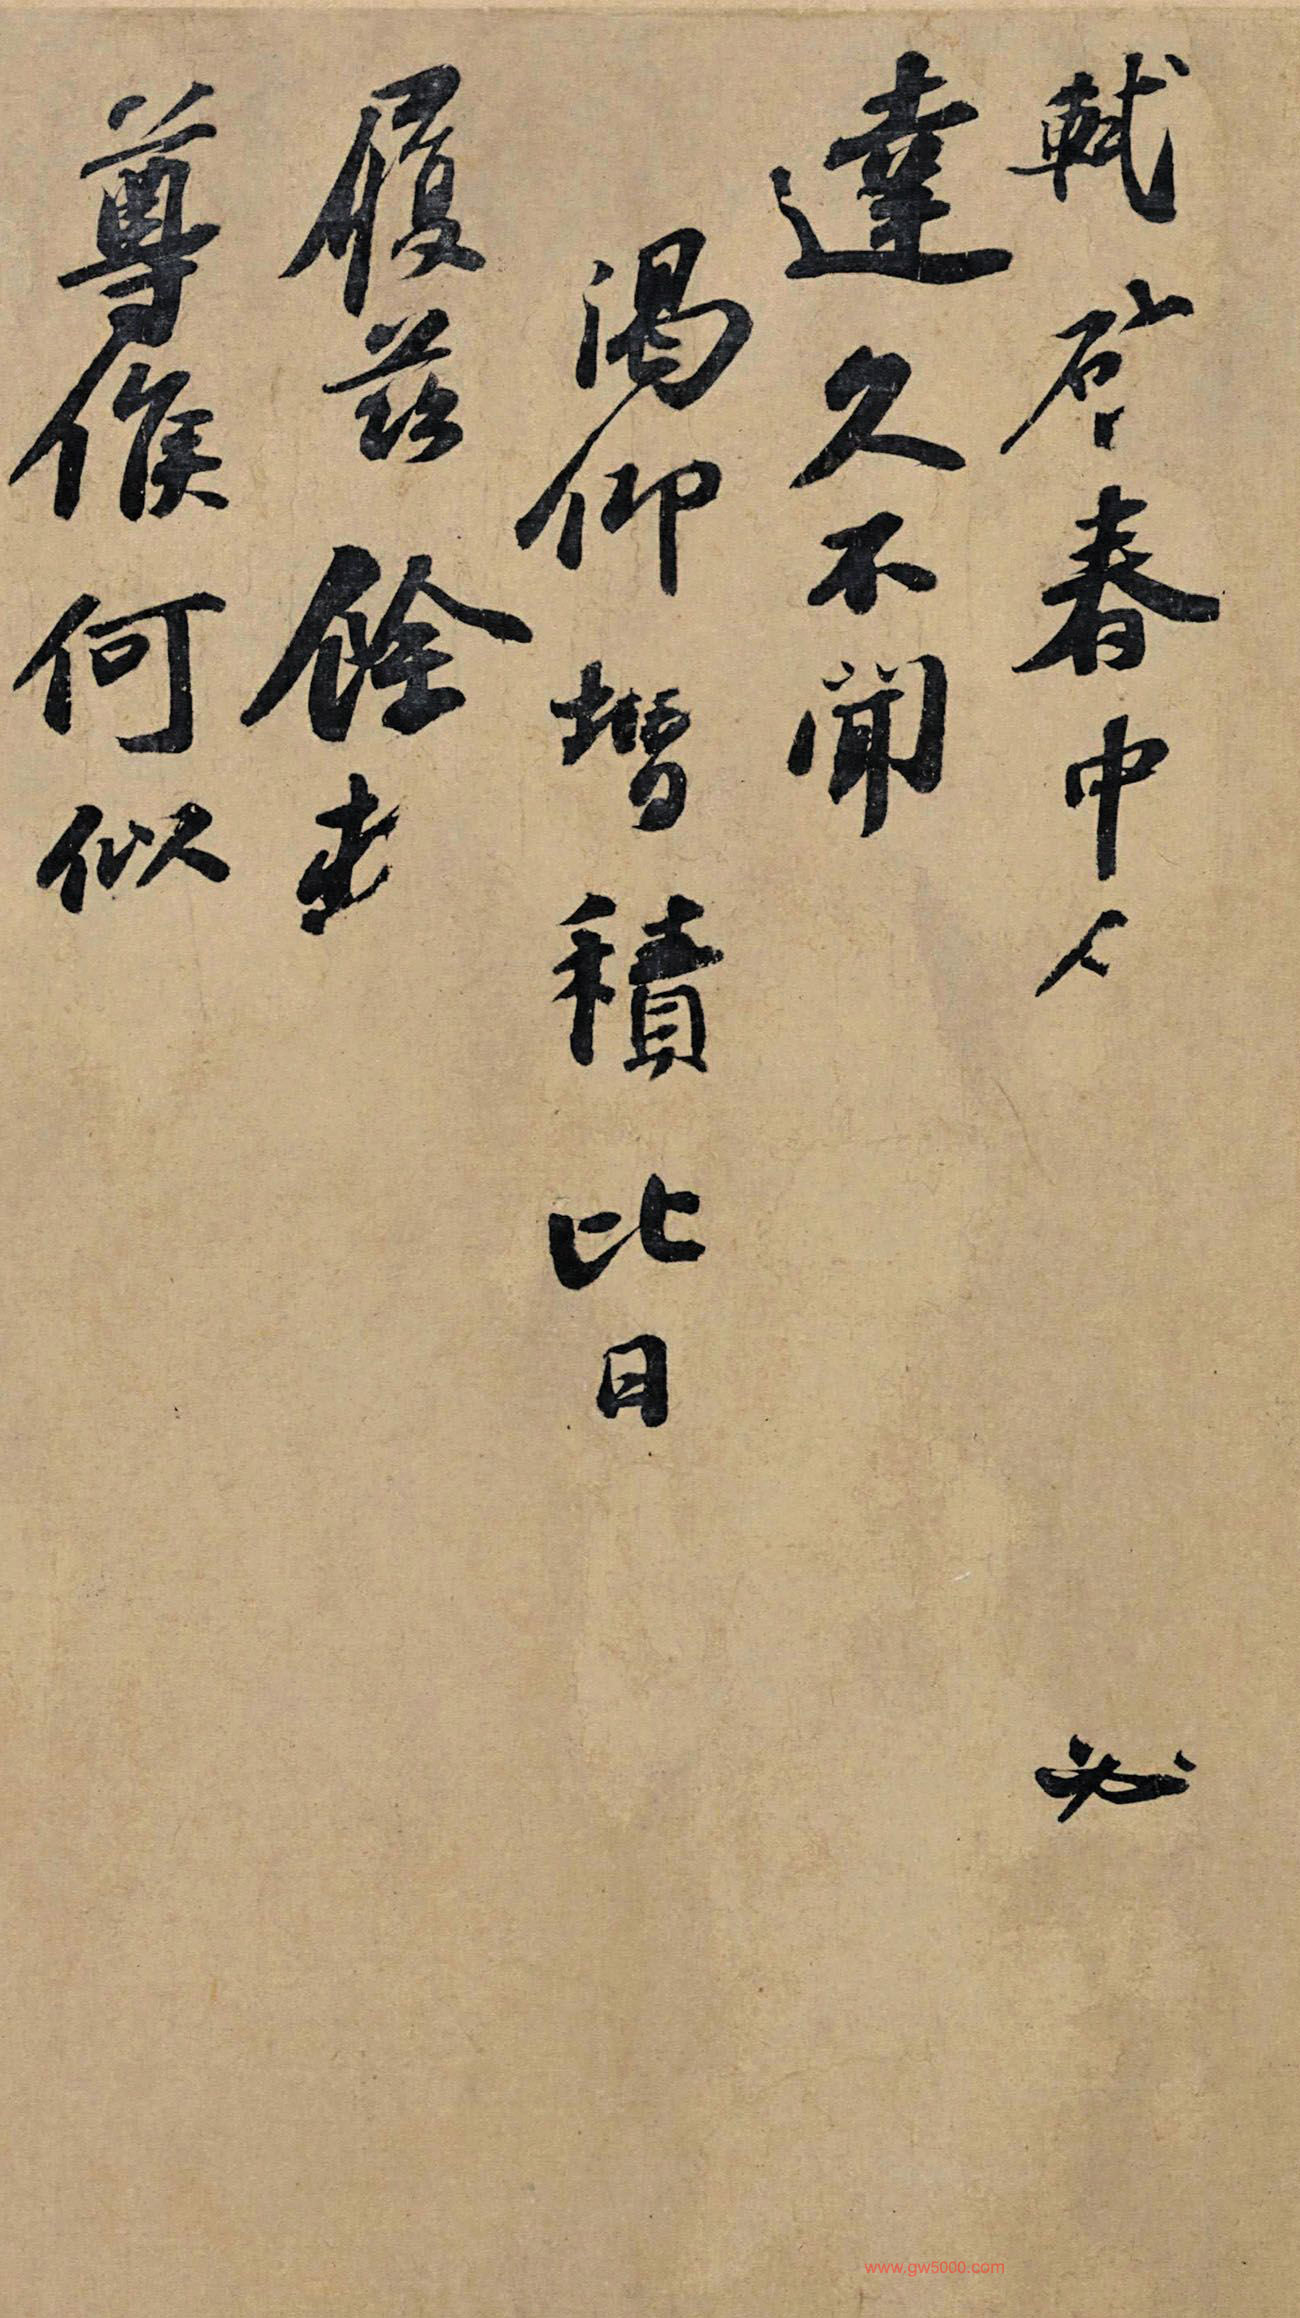 軾啓春中人必
達久不聞
渴仰增積比日
履兹餘
尊候何似
www.gw5000.com